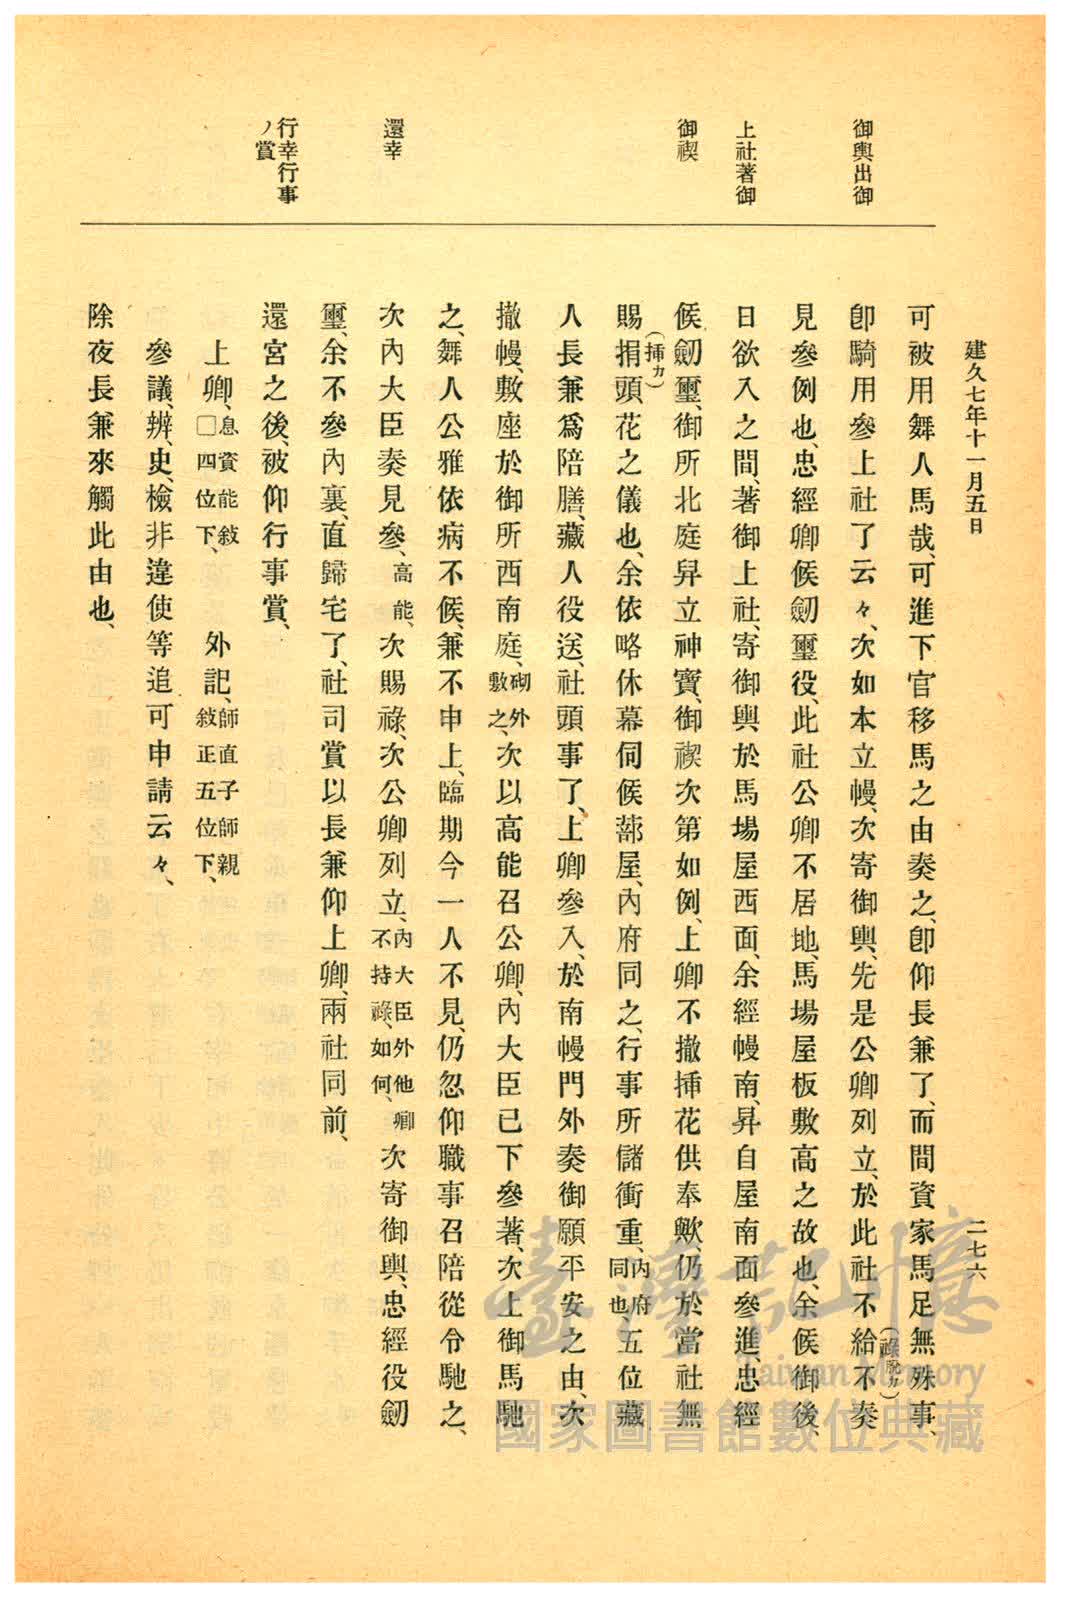 建久七年十一月五日
二七六
御輿出御
上社著御
御禊
還幸
行幸行事
ノ賞
可被用舞人馬哉、可進下官移馬之由奏之、卽仰長兼了、而間資家馬足無殊事、
卽騎用參上社了云々、次如本立幔、次寄御輿、先是公卿列立、於此社不給(祿脫カ)不奏
見參例也、忠經卿候劒璽役、此社公卿不居地、馬場屋板敷高之故也、余候御後、
日欲入之間、著御上社、寄御輿於馬場屋西面、余經幔南、昇自屋南面參進、忠經
候劒璽、御所北庭舁立神寶、御禊次第如例、上卿不撤揷花供奉歟、仍於當社無
賜捐(揷カ)頭花之儀也、余依略休幕伺候蔀屋、內府同之、行事所儲衝重、內府同也、五位藏
人長兼爲陪膳、藏人役送、社頭事了、上卿參入、於南幔門外奏御願平安之由、次
撤幔、敷座於御所西南庭、砌外敷之、次以高能召公卿、內大臣已下參著、次上御馬馳
之、舞人公雅依病不候、兼不申上、臨期今一人不見、仍忽仰職事召陪從令馳之、
次內大臣奏見參、高能、次賜祿、次公卿列立、內大臣外他卿不持祿、如何、次寄御輿、忠經役劒
璽、余不參內裏、直歸宅了、社司賞以長兼仰上卿、兩社同前、
還宮之後、被仰行事賞、
上卿、息資能敍□四位下、 外記、師直子師親敍正五位下、
參議、辨、史、檢非違使等追可申請云々、
除夜長兼來觸此由也、
臺灣記憶
Taiwan Memory
國家圖書館數位典藏